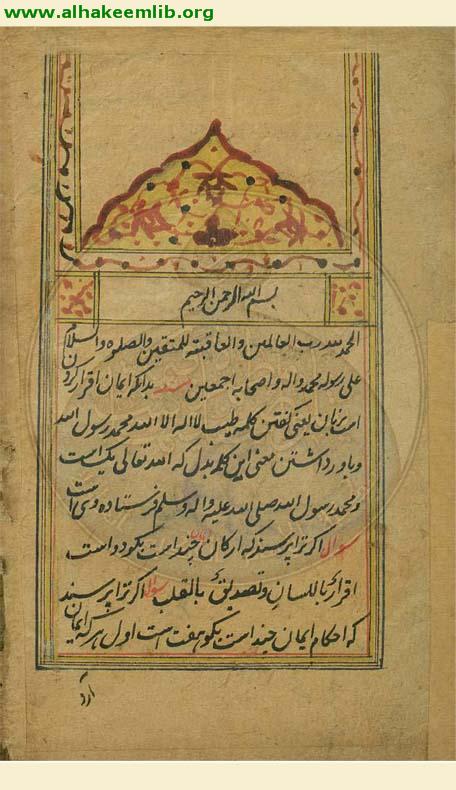 www.alhakeemlib.org
بسم الله الرحمن الرحيم
الحمد لله رب العالمين والعاقبة للمتقين والصلوة والسلام
على رسوله محمد واله و اصحابه اجمعين بدانکه ایمان اقرار کردن
است بزبان یعنی گفتن کلمه طیب لا اله الا الله محمد رسول الله
و باور داشتن معنی این کلمه بدل که الله تعالی یکیست
و محمد رسول الله صلی الله علیه واله وسلم فرستاده وی است
سوال اگر ترا پرسند که ارکان ایمان چند است بگو دو است
اقرار باللسان وتصدیق بالقلب سوال اگر ترا پرسند
که احکام ایمان چند است بگو هفت است اول هر که ایمان
ارد